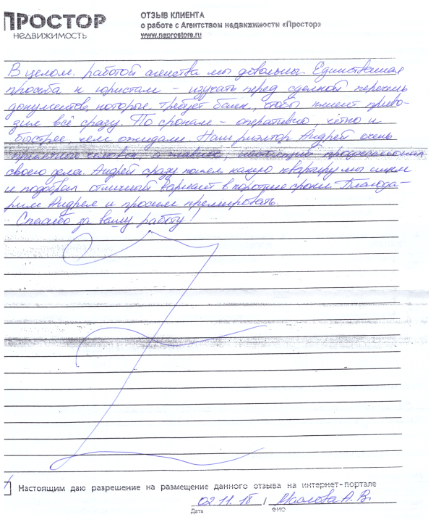 ПРОСТОР
НЕДВИЖИМОСТЬ
ОТЗЫВ КЛИЕНТА
о работе с Агентством недвижимости «Простор»
www.naprostore.ru
В целом работой агенства мы довольны. Единственная
просьба к юристам - изучать перед сделкой перечень
документов, которые требует банк, чтобы клиент приво-
зил всё сразу. По срокам - оперативно, чётко и
быстрее, чем ожидали. Наш риэлтор Андрей очень
приятный человек, а главное, настоящий профессионал
своего дела. Андрей сразу понял какую квартиру мы ищем
и подобрал отличный вариант в короткие сроки. Благода-
рим Андрея и просим премировать.
Спасибо за вашу работу!
Настоящим даю разрешение на размещение данного отзыва на интернет-портале
02.11.18 / А. В.
Дата ФИО